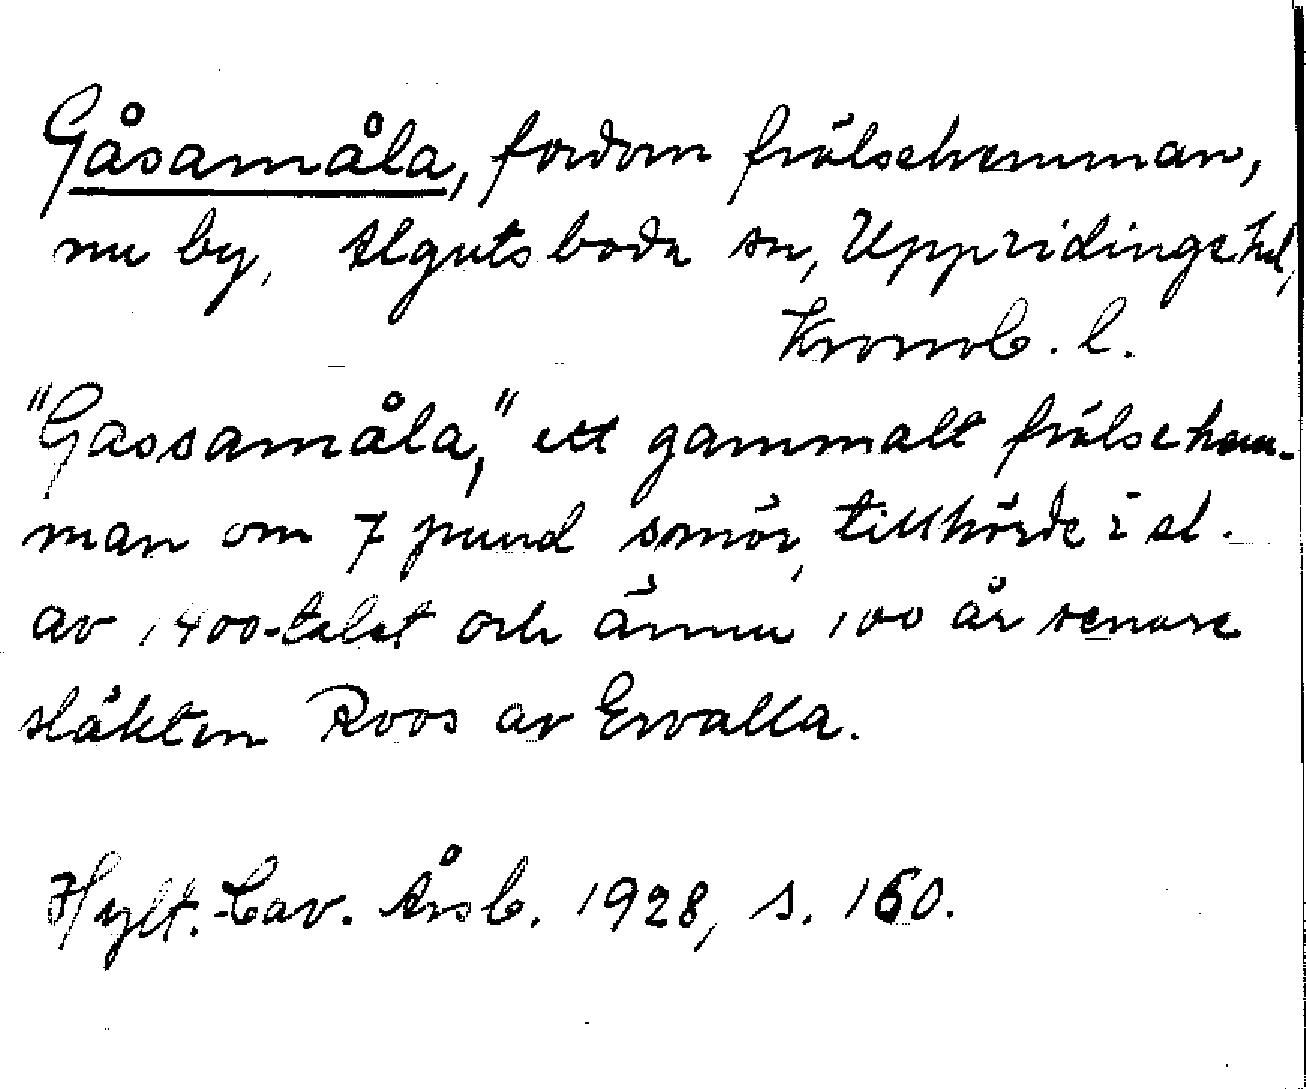 Gåsamåla, fordom frälsehemman,
nu by, Algutsboda sn, Uppvidinge hd,
Kronob. l.
"Gassamåla," ett gammalt frälsehem-
man om 7 pund smör, tillhörde i sl.
av 1400-talet och ännu 100 år senare
släkten Roos av Ervalla.
Hylt.-Cav. Årsb. 1928, s. 160.